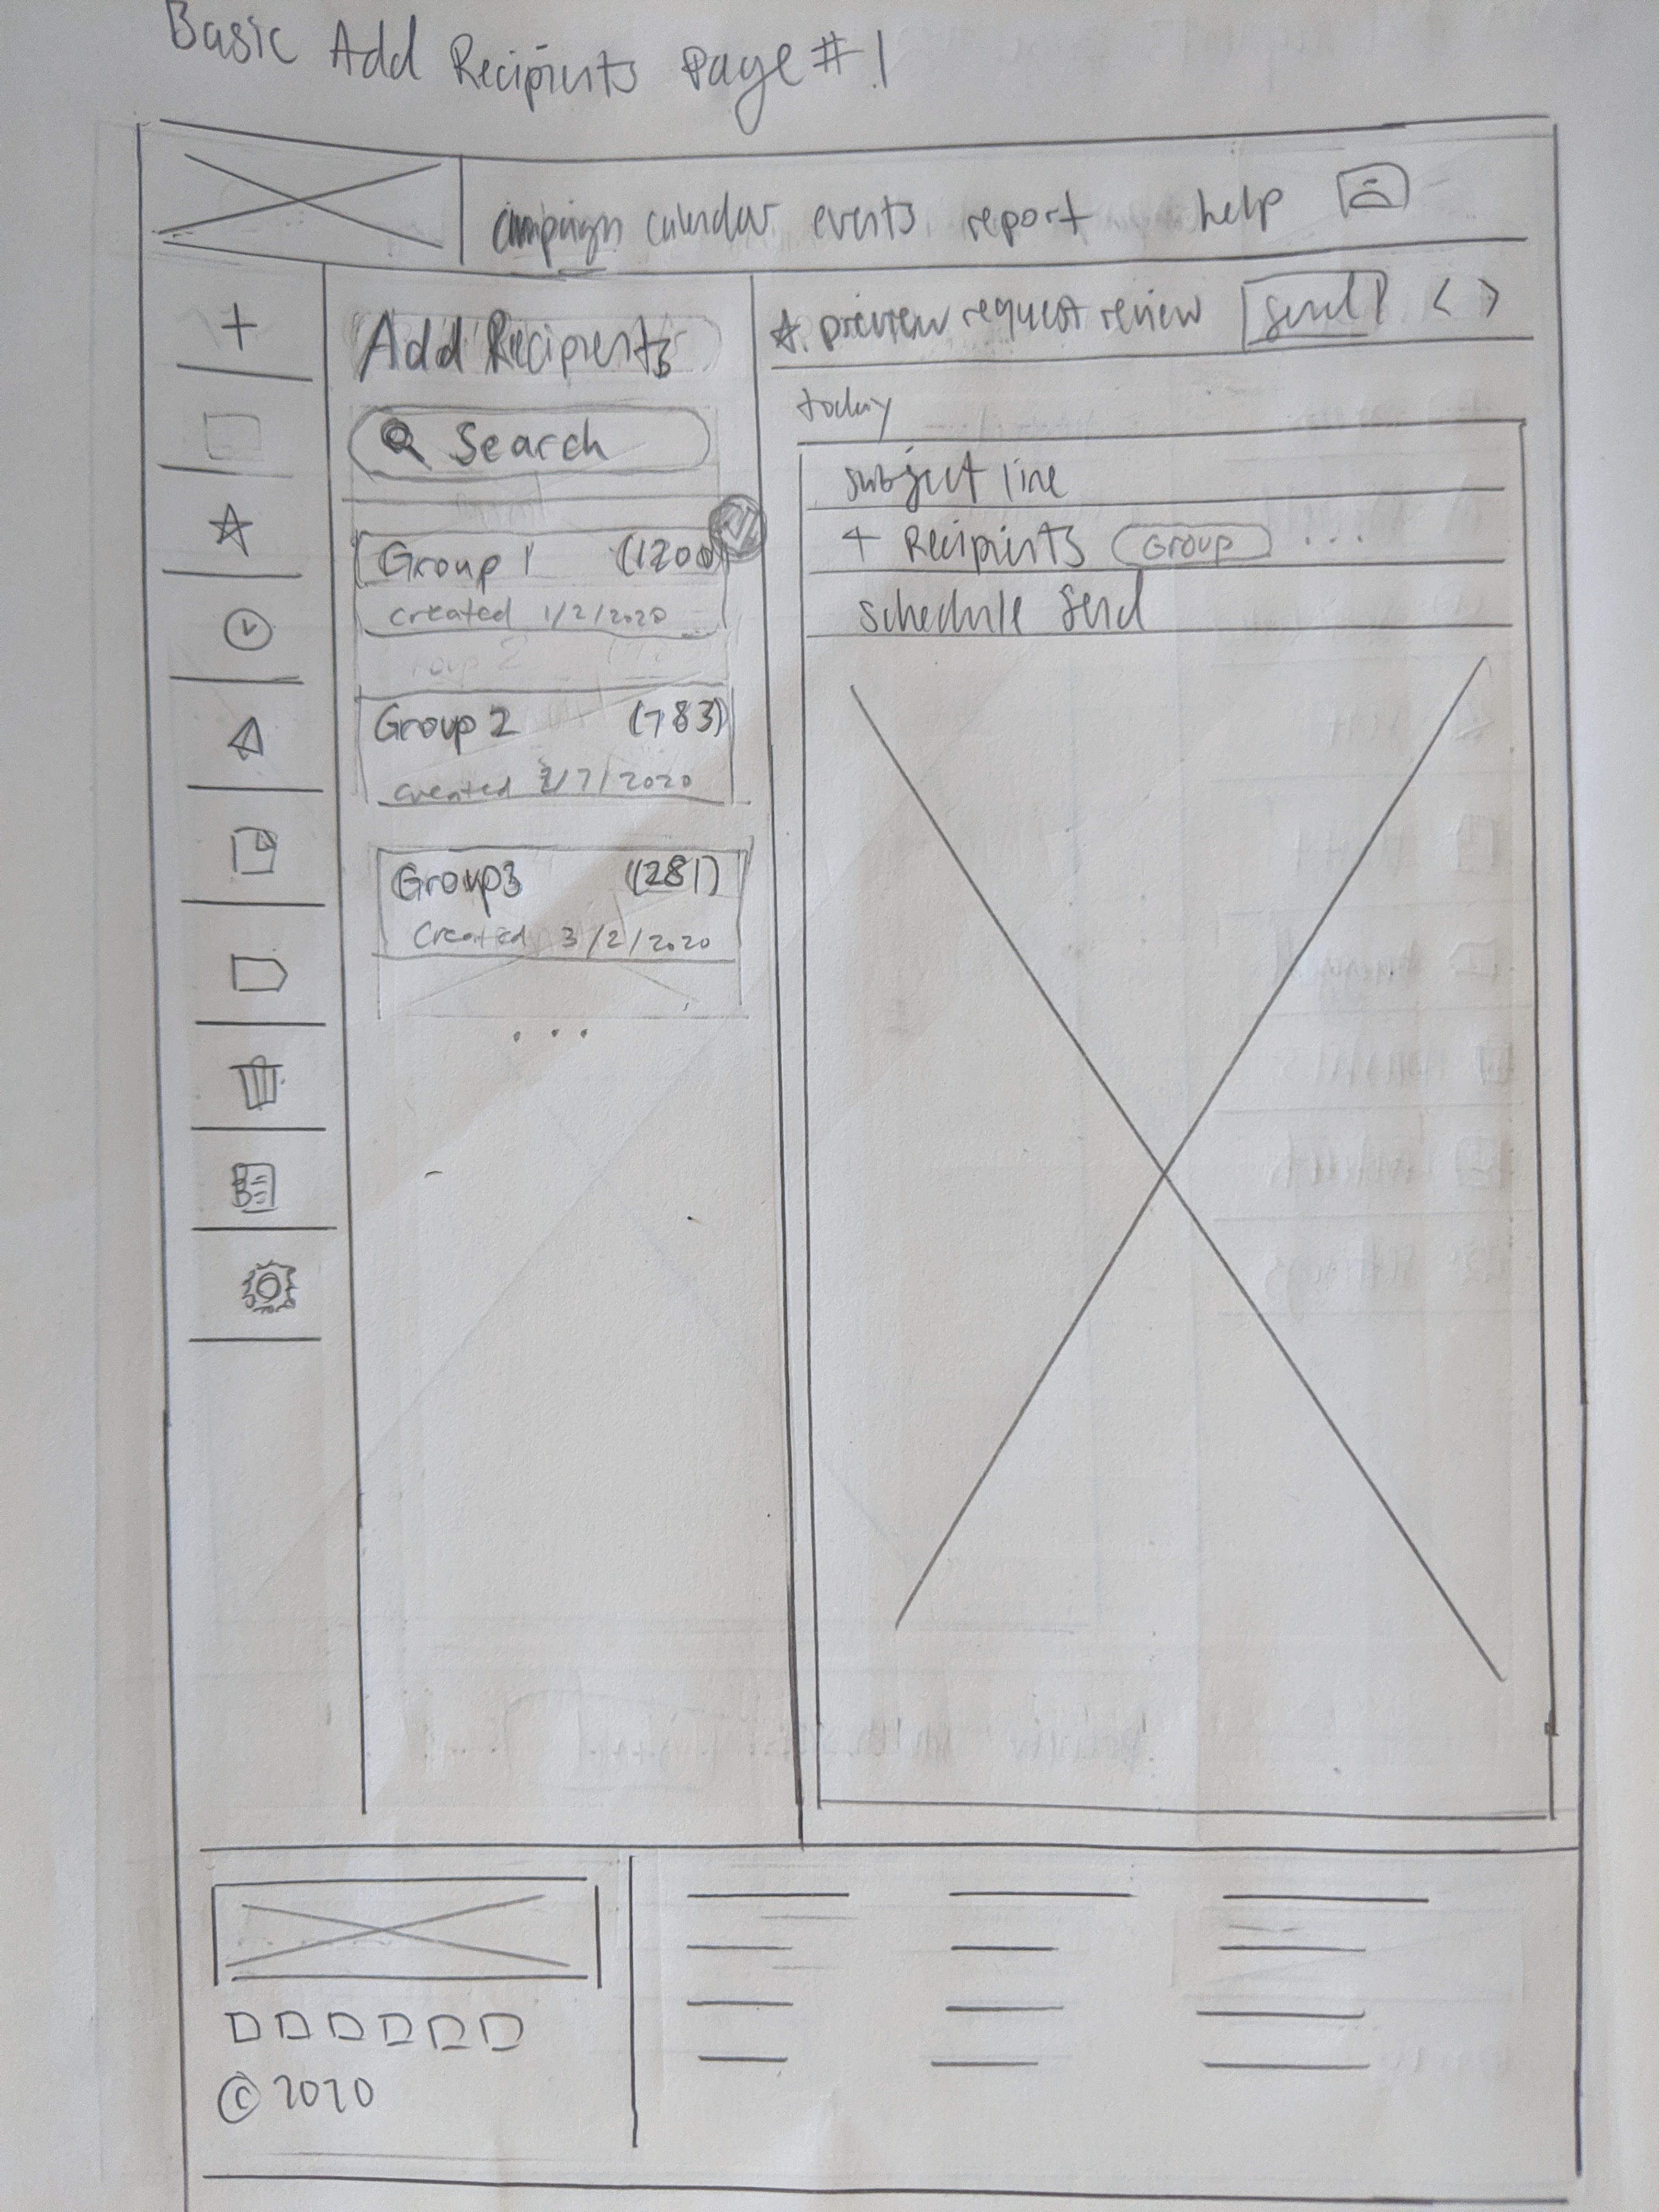 Basic Add Recipients Page #1
campaign calendar events report help
Add Recipients
Search
Group 1 (1200)
created 1/2/2020
Group 2 (783)
created 2/7/2020
Group 3 (281)
Created 3/2/2020
...
preview request review send < >
today
subject line
+ Recipients Group ...
schedule send
© 2020